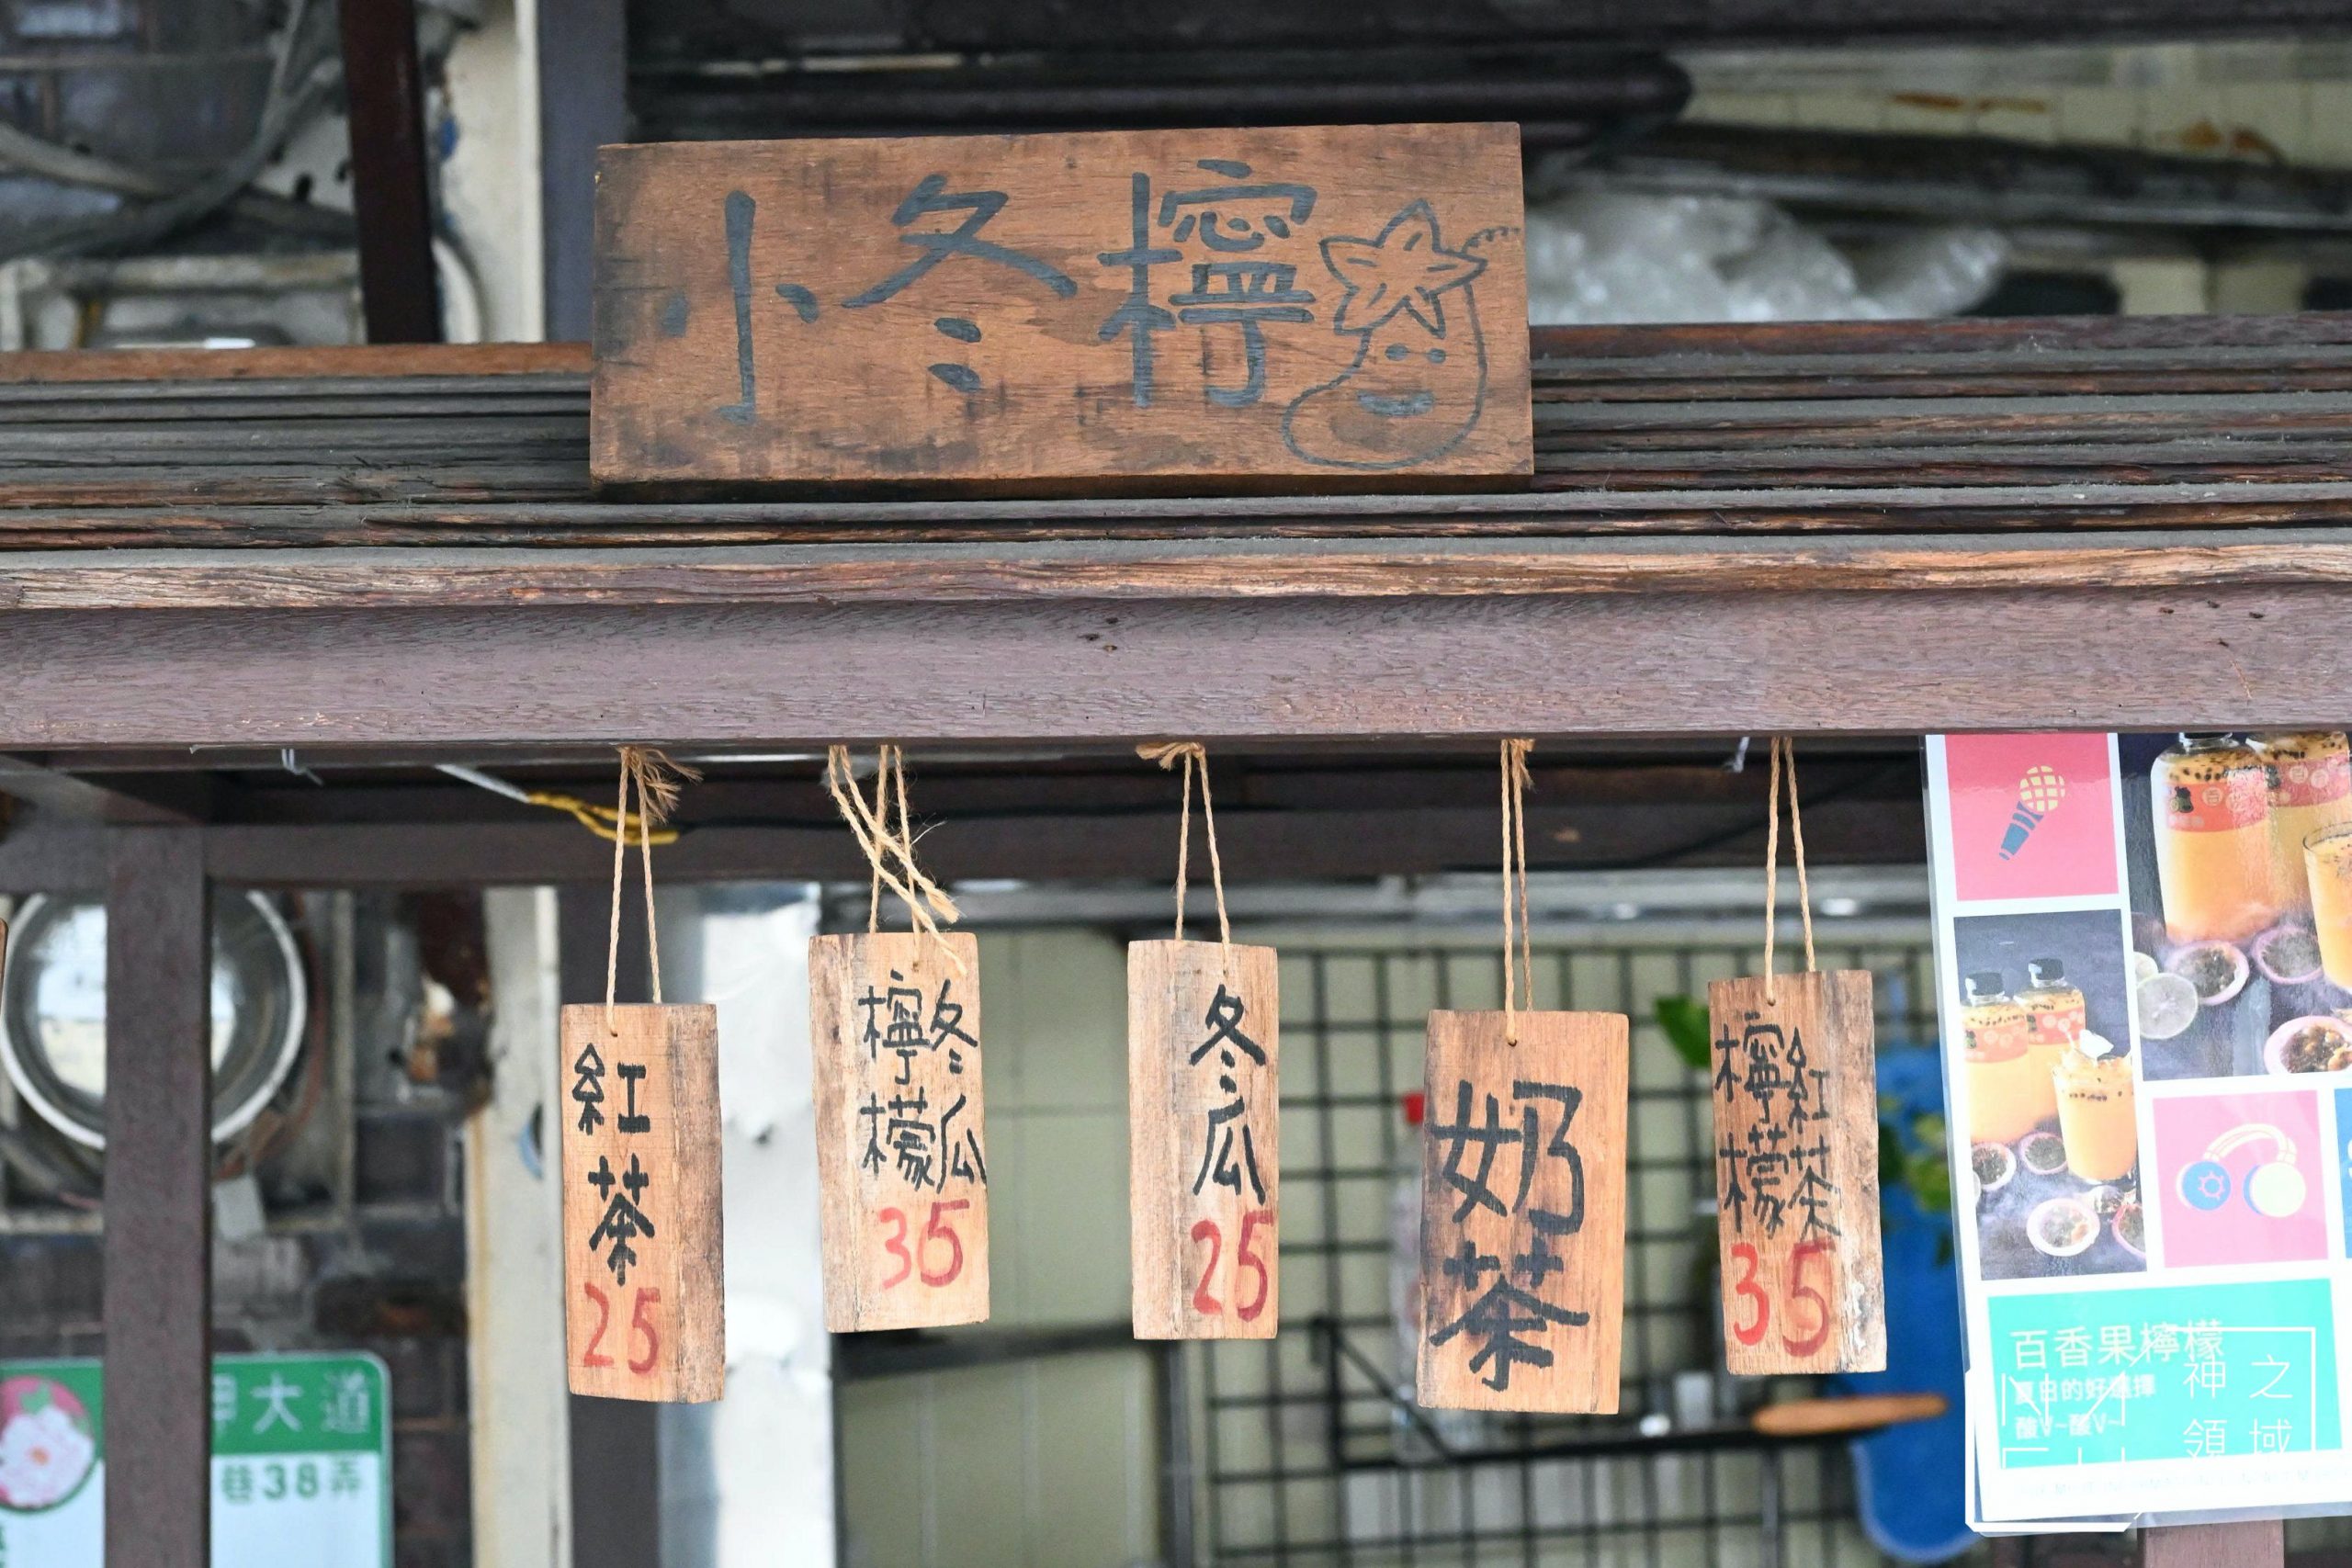 小冬檸
紅茶
25
冬瓜
檸檬
35
冬瓜
25
奶茶
紅茶
檸檬
35
百香果檸檬
夏日的好選擇
酸V~酸V~
神之
領域
大道
巷38弄